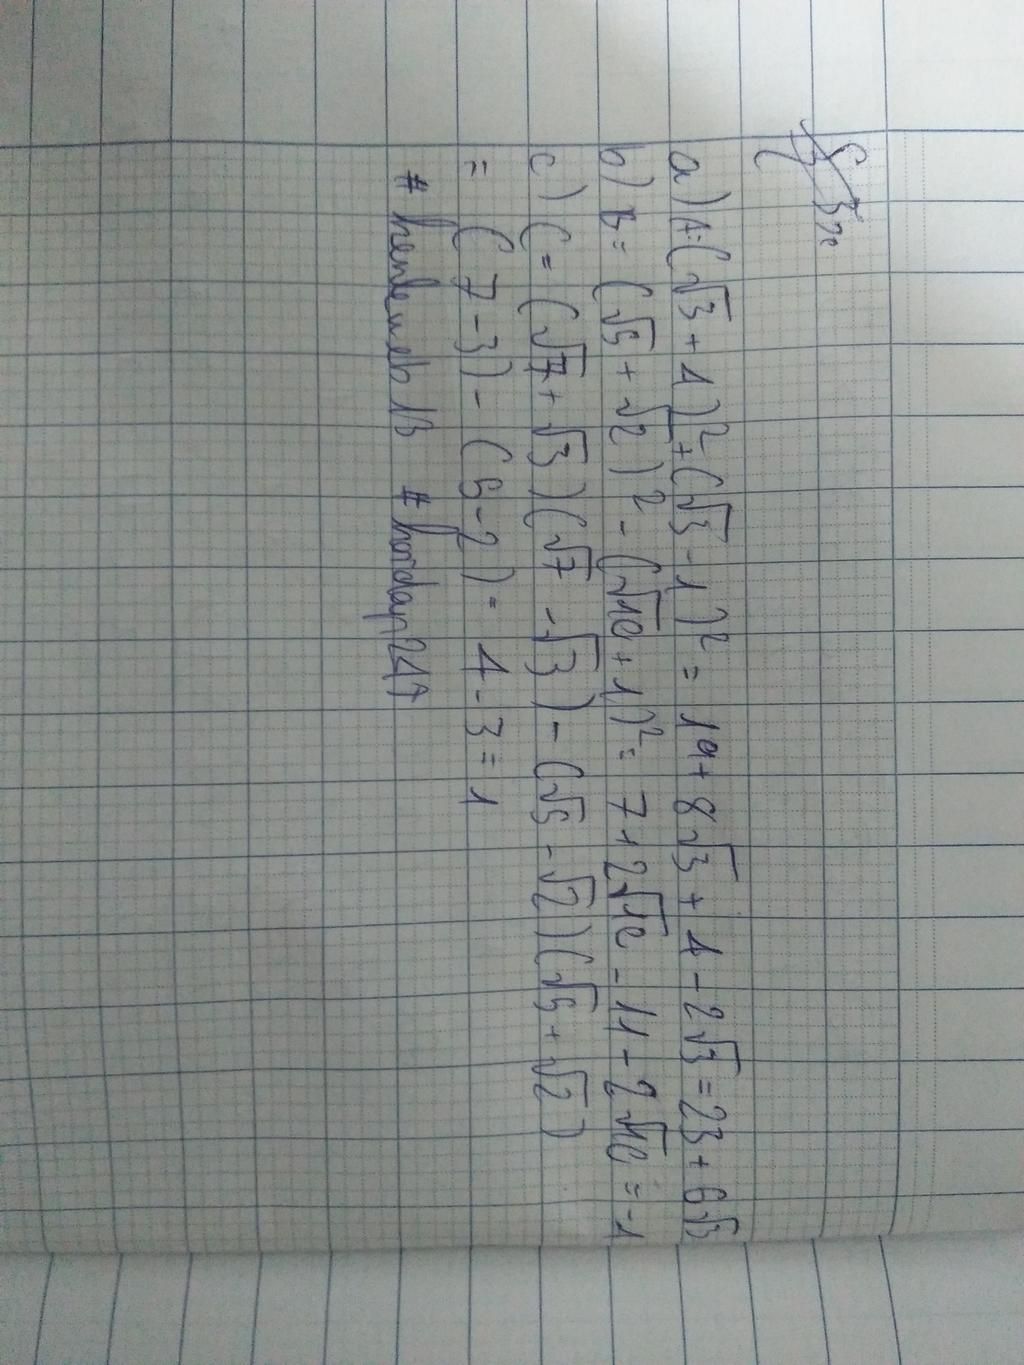 a) A=(√3+4)²+(√3-1)² = 19+8√3+4-2√3=23+6√3
b) B=(√5+√2)²-(√10+1)²=7+2√10-11-2√10=-1
c) C=(√7+√3)(√7-√3)-(√5-√2)(√5+√2)
=(7-3)-(5-2)=4-3=1
#hentemeb1B #hoidap247